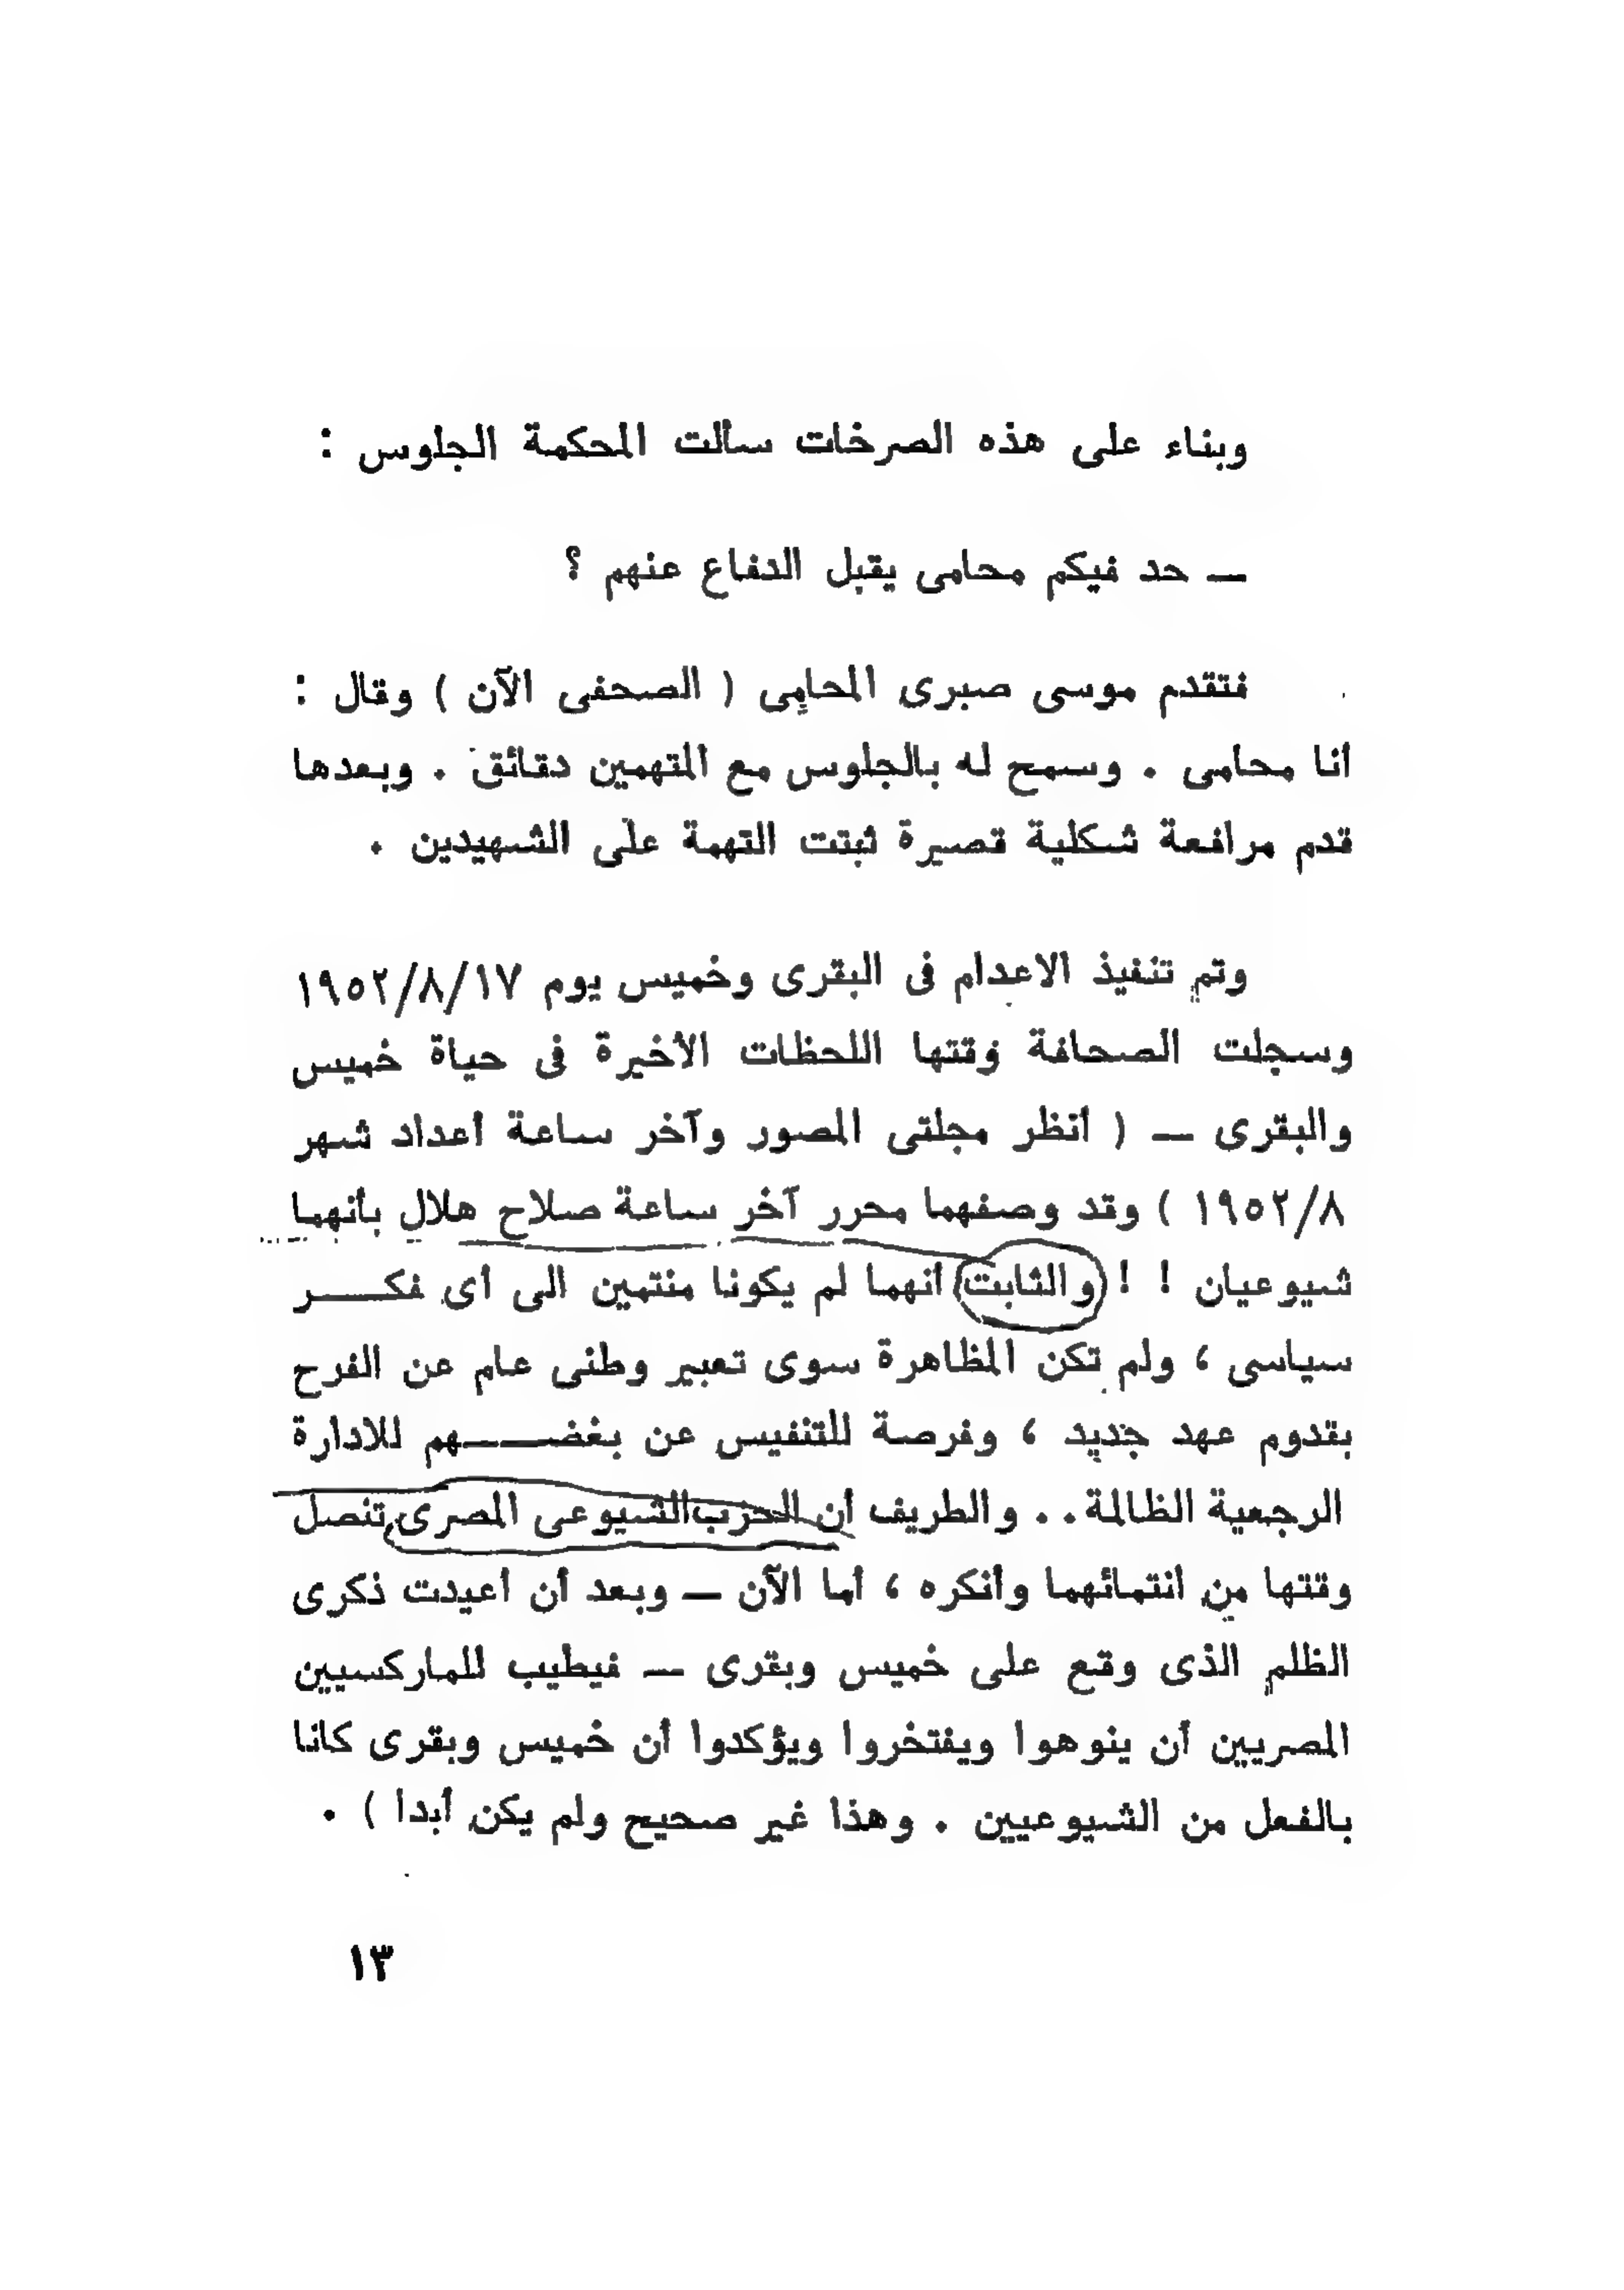 وبناء على هذه الصرخات سألت المحكمة الجلوس :
— حد فيكم محامى يقبل الدفاع عنهم ؟
فتقدم موسى صبرى المحامى ( الصحفى الآن ) وقال :
أنا محامى . وسمح له بالجلوس مع المتهمين دقائق . وبعدها
قدم مرافعة شكلية قصيرة ثبتت التهمة على الشهيدين .
وتم تنفيذ الاعدام فى البقرى وخميس يوم ١٩٥٢/٨/١٧
وسجلت الصحافة وقتها اللحظات الأخيرة فى حياة خميس
والبقرى — ( أنظر مجلتى المصور وآخر ساعة أعداد شهر
١٩٥٢/٨ ) وقد وصفهما محرر آخر ساعة صلاح هلال بأنهما
شيوعيان ! ! والثابت أنهما لم يكونا منتمين الى أى فكـــر
سياسى ، ولم تكن المظاهرة سوى تعبير وطنى عام عن الفرح
بقدوم عهد جديد ، وفرصة للتنفيس عن بغضـــهم للادارة
الرجعية الظالمة . . والطريف أن الحزب الشيوعى المصرى تنصل
وقتها من انتمائهما وأنكره ، أما الآن — وبعد أن أعيدت ذكرى
الظلم الذى وقع على خميس وبقرى — فيطيب للماركسيين
المصريين أن ينوهوا ويفتخروا ويؤكدوا أن خميس وبقرى كانا
بالفعل من الشيوعيين . وهذا غير صحيح ولم يكن أبدا ) .
١٣